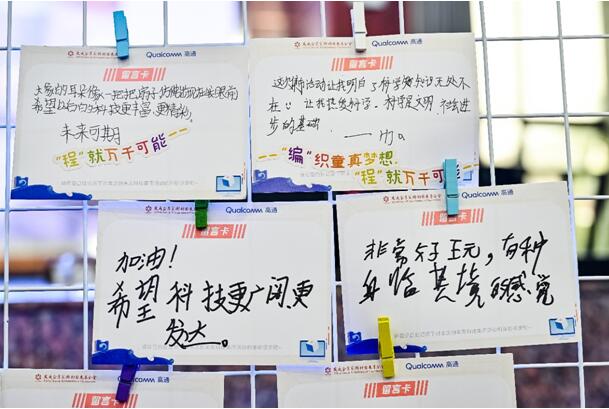 Qualcomm 高通
留言卡
大象的耳朵像一把把扇子仿佛出现在我眼前
希望以后的科技更丰富更精彩
未来可期
“程”就万千可能
Qualcomm 高通
留言卡
这次活动让我明白了科学知识无处不
在 让我热爱科学。科学是文明、社会进
步的基础
“编”织童真梦想
“程”就万千可能
Qualcomm 高通
留言卡
加油!
希望科技更广阔更
发达。
Qualcomm 高通
留言卡
非常好玩,有种
身临其境的感觉
Qualcomm 高通
留言卡
Qualcomm 高通
留言卡